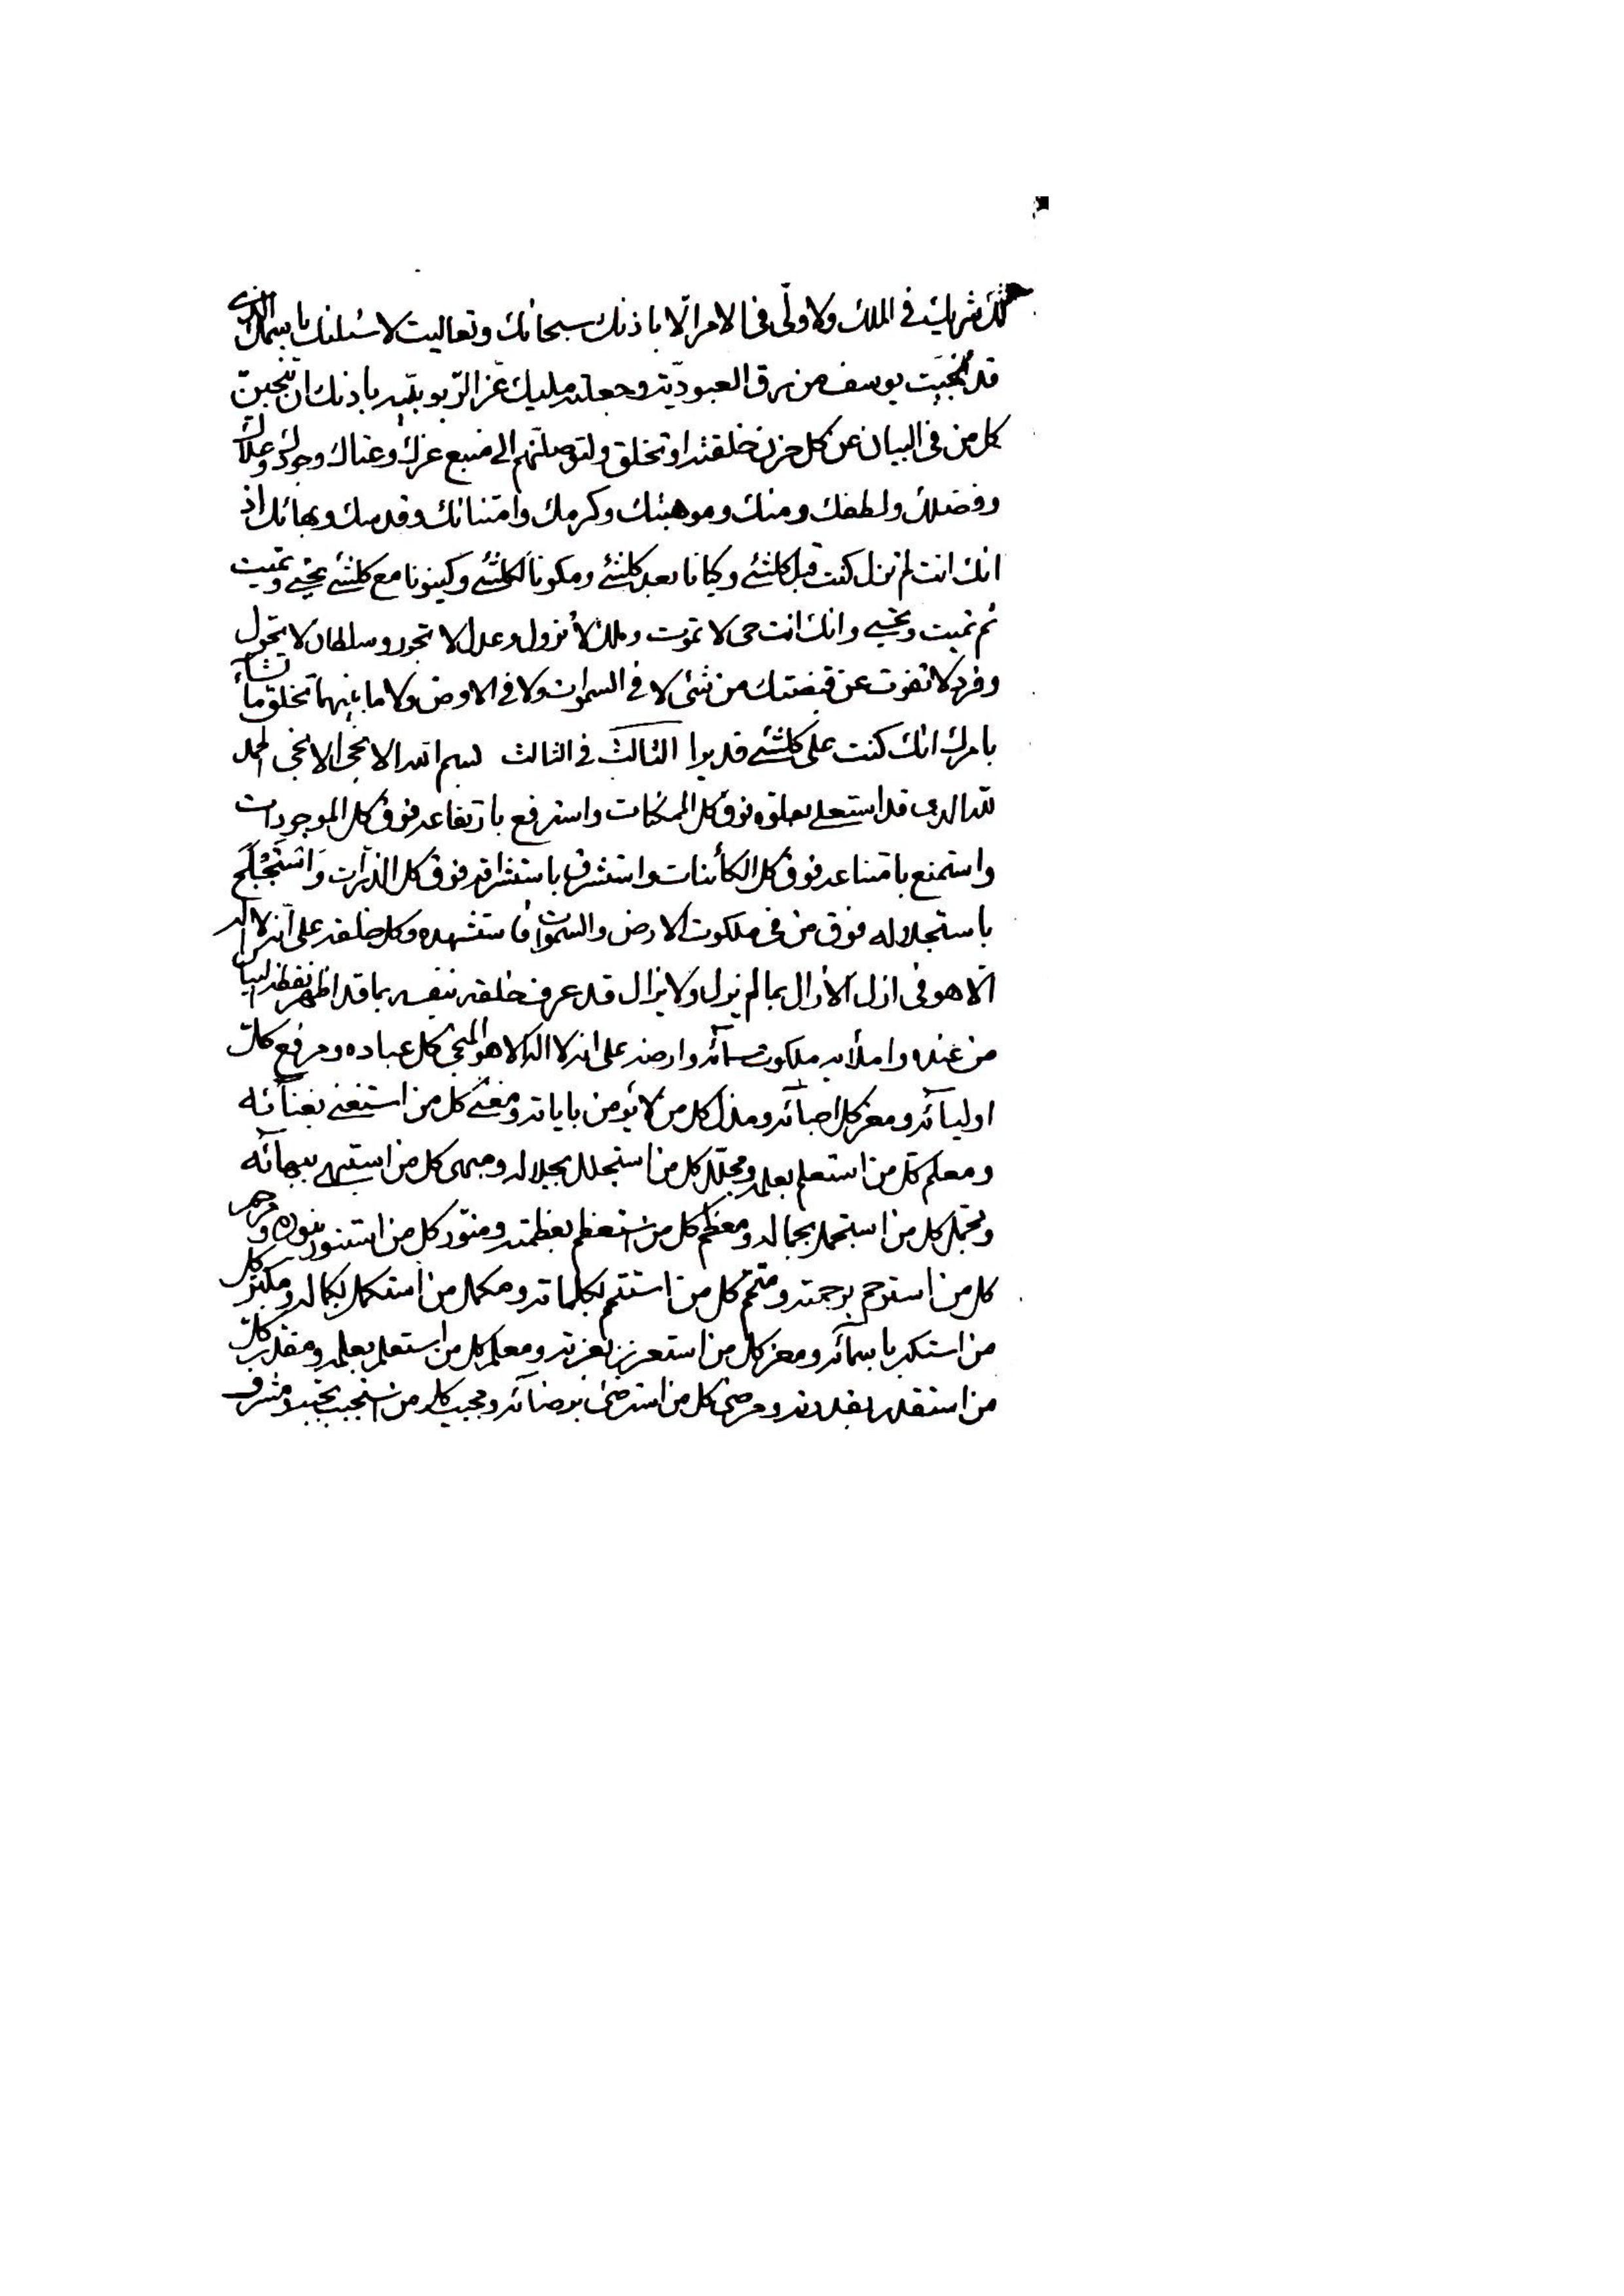 لك شريك في الملك ولا ولّى في الامر الّا باذنك سبحانك وتعاليت لاسئلنك باسمك الذى
قد نجيت يوسف من رق العبوديّة وجعلته مليك عزّ الرّبوبيّة باذنك ان تنجينّ
كل من فى البيان عن كل حزن خلقته او تخلق ولتوصلنّهم الى منبع عزك وغناك وجودك وعلاك
وفضلك ولطفك ومنك وموهبتك وكرمك وامتنانك وقدسك وبهائك اذ
انك انت لم تزل كنت قبل كلشئ وكيانا بعد كلشئ ومكونا لكلشئ وكينونا مع كلشئ تحيى وتميت
ثم تميت وتحيى وانك انت حى لا تموت وملك لا تزول وعدل لا تجور وسلطان لا يتحول
وفرد لا تفوت عن قبضتك من شئ لا فى السموات ولا فى الارض ولا ما بينهما تخلق ما تشآء
بامرك انك كنت على كلشئ قديرا الثالث فى الثالث بسم الله الانجى الانجى الحمد
لله الذى قد استعلى بعلوه فوق كل الممكنات واسترفع بارتفاعه فوق كل الموجودات
واستمنع بامتناعه فوق كل الكائنات واستشرق باستشراقه فوق كل الذرّات واستجلل
باستجلاله فوق من فى ملكوت الارض والسموات فاستشهده وكل خلقه على انه لا اله
الّا هو فى ازل الازال بما لم يزل ولا يزال قد عرف خلقه نفسه بما قد اظهر نقطة البيان
من عنده واملأ به ملكوت سمآئه وارضه على انه لا اله الا هو المنجى كل عباده ومرفع كلّ
اوليآئه ومعز كل احبآئه ومذل كل من لا يؤمن باياته ومغنى كل من استغنى بغنآئه
ومعلم كل من استعلم بعلمه ومجلّل كل من استجلل بجلاله ومبهى كل من استبهى ببهآئه
ومجمّل كل من استجمل بجماله ومعظّم كل من استعظم بعظمته ومنوّر كل من استنور بنوره ومرحم
كل من استرحم برحمته ومتمّم كل من استتم بكلماته ومكمل من استكمل بكماله ومكبّر كل
من استكبر باسمآئه ومعز كل من استعزز بعزته ومعلم كل من استعلم بعلمه ومقدر كلّ
من استقدر بقدرته ومرضى كل من استرضى برضآئه ومحبب كل من استحبب بحبه ومشرف